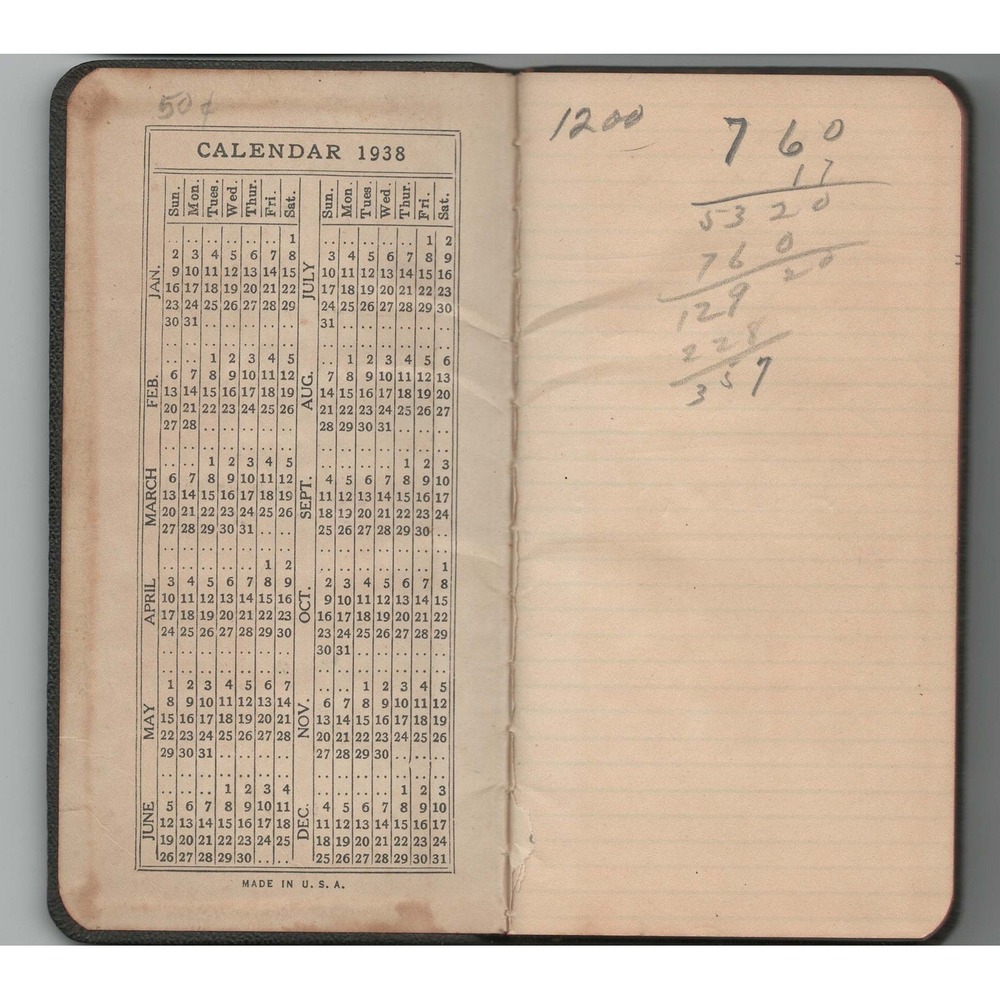 50¢
CALENDAR 1938
Sun. Mon. Tues. Wed. Thur. Fri. Sat.
JAN.
1
2 3 4 5 6 7 8
9 10 11 12 13 14 15
16 17 18 19 20 21 22
23 24 25 26 27 28 29
30 31
FEB.
1 2 3 4 5
6 7 8 9 10 11 12
13 14 15 16 17 18 19
20 21 22 23 24 25 26
27 28
MARCH
1 2 3 4 5
6 7 8 9 10 11 12
13 14 15 16 17 18 19
20 21 22 23 24 25 26
27 28 29 30 31
APRIL
1 2
3 4 5 6 7 8 9
10 11 12 13 14 15 16
17 18 19 20 21 22 23
24 25 26 27 28 29 30
MAY
1 2 3 4 5 6 7
8 9 10 11 12 13 14
15 16 17 18 19 20 21
22 23 24 25 26 27 28
29 30 31
JUNE
1 2 3 4
5 6 7 8 9 10 11
12 13 14 15 16 17 18
19 20 21 22 23 24 25
26 27 28 29 30
Sun. Mon. Tues. Wed. Thur. Fri. Sat.
JULY
1 2
3 4 5 6 7 8 9
10 11 12 13 14 15 16
17 18 19 20 21 22 23
24 25 26 27 28 29 30
31
AUG.
1 2 3 4 5 6
7 8 9 10 11 12 13
14 15 16 17 18 19 20
21 22 23 24 25 26 27
28 29 30 31
SEPT.
1 2 3
4 5 6 7 8 9 10
11 12 13 14 15 16 17
18 19 20 21 22 23 24
25 26 27 28 29 30
OCT.
1
2 3 4 5 6 7 8
9 10 11 12 13 14 15
16 17 18 19 20 21 22
23 24 25 26 27 28 29
30 31
NOV.
1 2 3 4 5
6 7 8 9 10 11 12
13 14 15 16 17 18 19
20 21 22 23 24 25 26
27 28 29 30
DEC.
1 2 3
4 5 6 7 8 9 10
11 12 13 14 15 16 17
18 19 20 21 22 23 24
25 26 27 28 29 30 31
MADE IN U. S. A.
1200
760
17
5320
760
12920
228
357